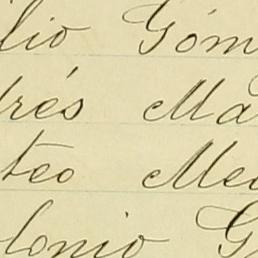 lio Góm
drés Ma
teo Me
lonio G